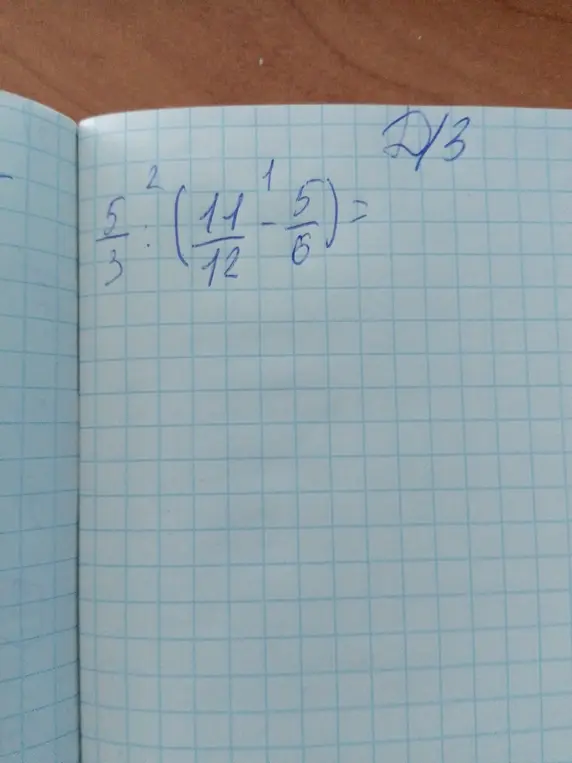 Д/З
5/3 :² (11/12 -¹ 5/6) =